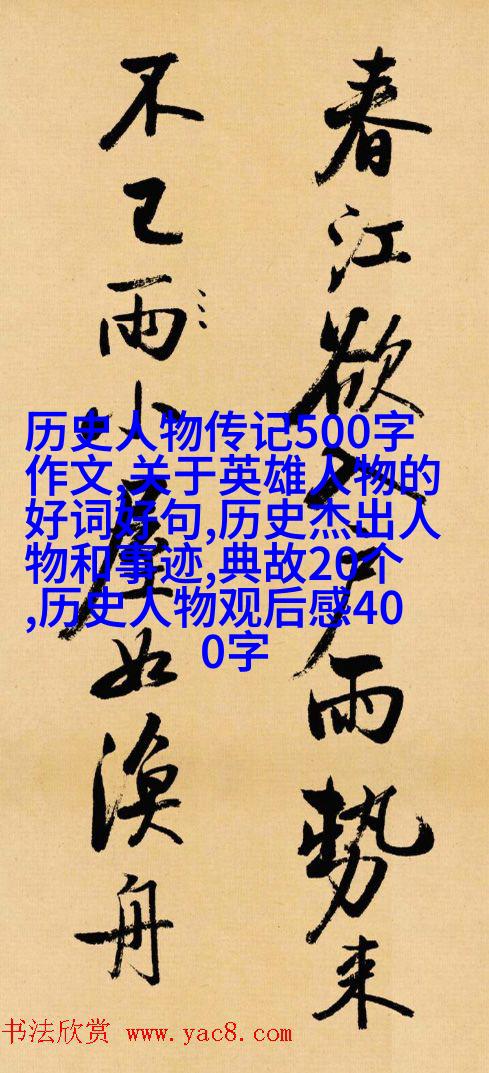 春江欲入戶雨勢来
不已雨小屋如漁舟
历史人物传记500字
作文,关于英雄人物的
好词好句,历史杰出人
物和事迹,典故20个
,历史人物观后感40
0字
书法欣赏 www.yac8.com